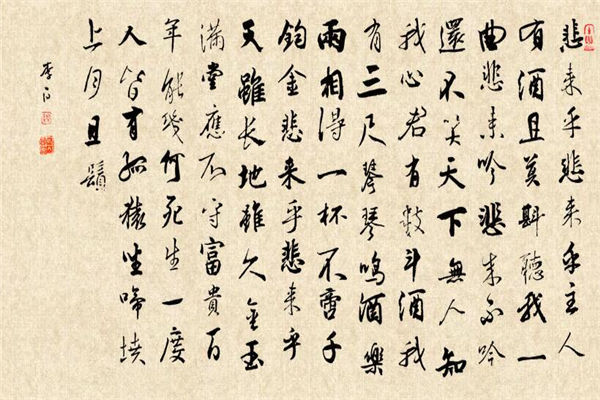 悲来乎悲来乎主人
有酒且莫斟聽我一
曲悲来吟悲来不吟
還不笑天下無人知
我心君有数斗酒我
有三尺琴琴鳴酒樂
兩相得一杯不啻千
鈞金悲来乎悲来乎
天雖长地雖久金玉
滿堂應不守富貴百
年能幾何死生一度
人皆有孤猿坐啼墳
上月且鬚
李白